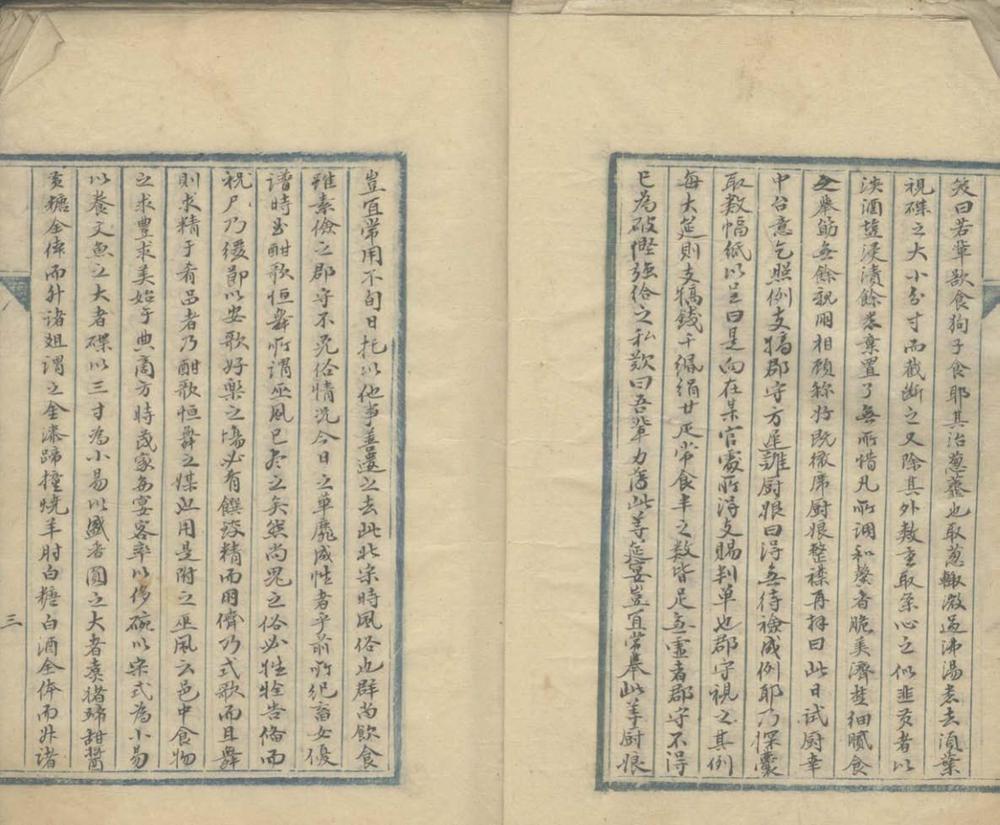 笑曰若輩欲食狗子食耶其治葱虀也取葱輙微過沸湯悉去湏葉
視碟之大小分寸而截斷之又除其外數重取条心之似韭黄者以
淡酒塩浸漬餘悉棄置了無所惜凡所調和馨香脆美濟楚細膩食
之舉筯無餘親朋相顧称好既撤席厨娘整襟再拜曰此日試厨幸
中台意乞照例支犒郡守方遅難厨娘曰得無待檢成例耶乃探囊
取数幅紙以呈曰是向在某官處所得支賜判单也郡守視之其例
每大筵則支犒錢千緡絹廿疋常食半之数皆足無虚者郡守不得
已為破慳強給之私歎曰吾輩力薄此等筵宴豈宜常舉此等厨娘
豈宜常用不旬日托以他事善遣之去此北宋時風俗也群尚飲食
雖素儉之郡守不免俗情况今日之單靡成性者乎前所紀畜女優
譜時曲酣歌恒舞所謂巫風已尽之矣然尚鬼之俗必牲牷告偹而
祝尸乃緩節以安歌好樂之塲必有饌諮精而用儕乃式歌而且舞
則求精于肴品者乃酣歌恒舞之媒也用是附之巫風云邑中食物
之求豐求美始于典商方時茂家每宴客率以侈碗以宋式為小易
以養文魚之大者碟以三寸為小易以盛香圓之大者煑猪蹄甜醬
黄糖全体而升诸俎謂之金漆蹄撞焼羊肘白糖白酒全体而升诸
三